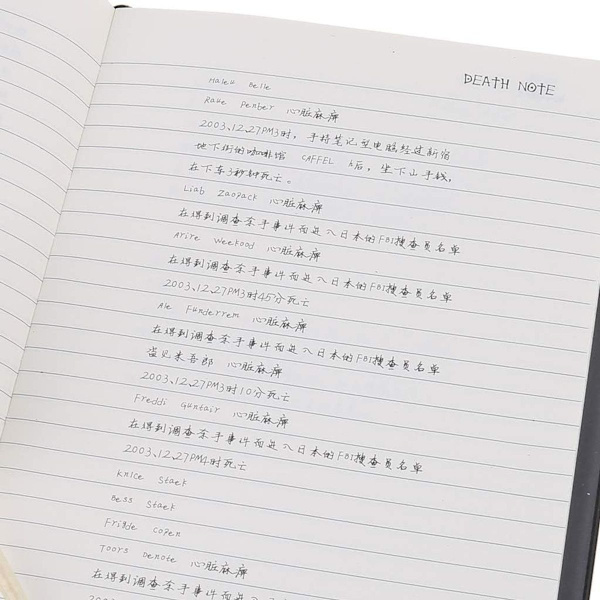 DEATH NOTE
Haley Belle
Raye Penber 心脏麻痹
2003.12.27PM3时，手持笔记型电脑经过新宿
地下街的咖啡馆 CAFFEL 后，坐下山手线，
在下车3秒钟死亡。
Liab Zaopack 心脏麻痹
在得到调查杀手事件而进入日本的FBI搜查员名单
Arire Weekood 心脏麻痹
在得到调查杀手事件而进入日本的FBI搜查员名单
2003.12.27PM3时45分死亡
Ale Funderrem 心脏麻痹
在得到调查杀手事件而进入日本的FBI搜查员名单
盗见来吾郎 心脏麻痹
2003.12.27PM3时10分死亡
Freddi Guntair 心脏麻痹
在得到调查杀手事件而进入日本的FBI搜查员名单
2003.12.27PM4时死亡
Knice Staek
Bess Staek
Fridde Copen
Toors Denote 心脏麻痹
在得到调查杀手事件而进入日本的FBI搜查员名单
2003.12.27PM